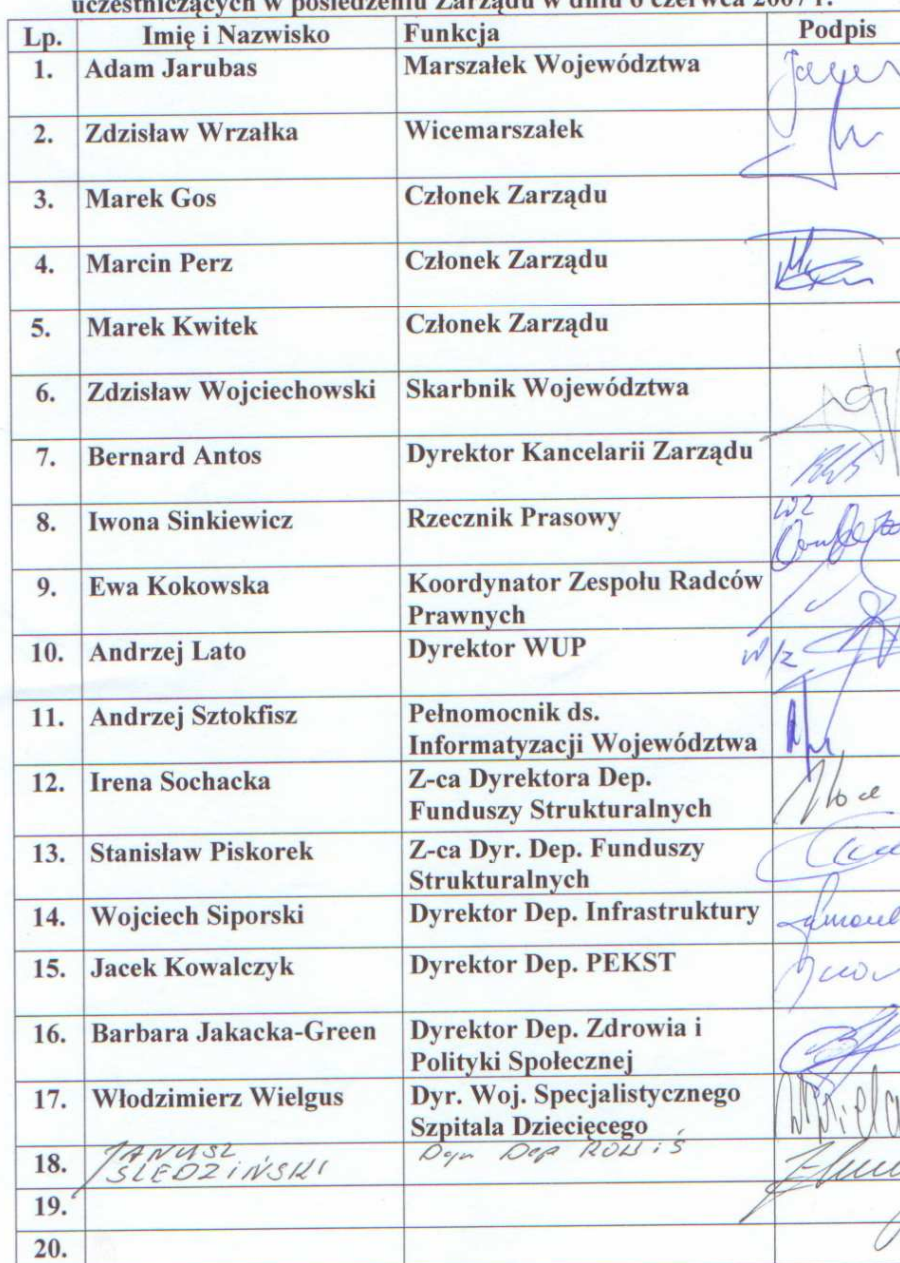 uczestniczących w posiedzeniu Zarządu w dniu 6 czerwca 2007 r.
Lp. Imię i Nazwisko Funkcja Podpis
1. Adam Jarubas Marszałek Województwa
2. Zdzisław Wrzałka Wicemarszałek
3. Marek Gos Członek Zarządu
4. Marcin Perz Członek Zarządu
5. Marek Kwitek Członek Zarządu
6. Zdzisław Wojciechowski Skarbnik Województwa
7. Bernard Antos Dyrektor Kancelarii Zarządu
8. Iwona Sinkiewicz Rzecznik Prasowy wz
9. Ewa Kokowska Koordynator Zespołu Radców
Prawnych
10. Andrzej Lato Dyrektor WUP w/z
11. Andrzej Sztokfisz Pełnomocnik ds.
Informatyzacji Województwa
12. Irena Sochacka Z-ca Dyrektora Dep.
Funduszy Strukturalnych
13. Stanisław Piskorek Z-ca Dyr. Dep. Funduszy
Strukturalnych
14. Wojciech Siporski Dyrektor Dep. Infrastruktury
15. Jacek Kowalczyk Dyrektor Dep. PEKST
16. Barbara Jakacka-Green Dyrektor Dep. Zdrowia i
Polityki Społecznej
17. Włodzimierz Wielgus Dyr. Woj. Specjalistycznego
Szpitala Dziecięcego
18. JANUSZ
ŚLEDZIŃSKI Dep ROW i Ś
19.
20.